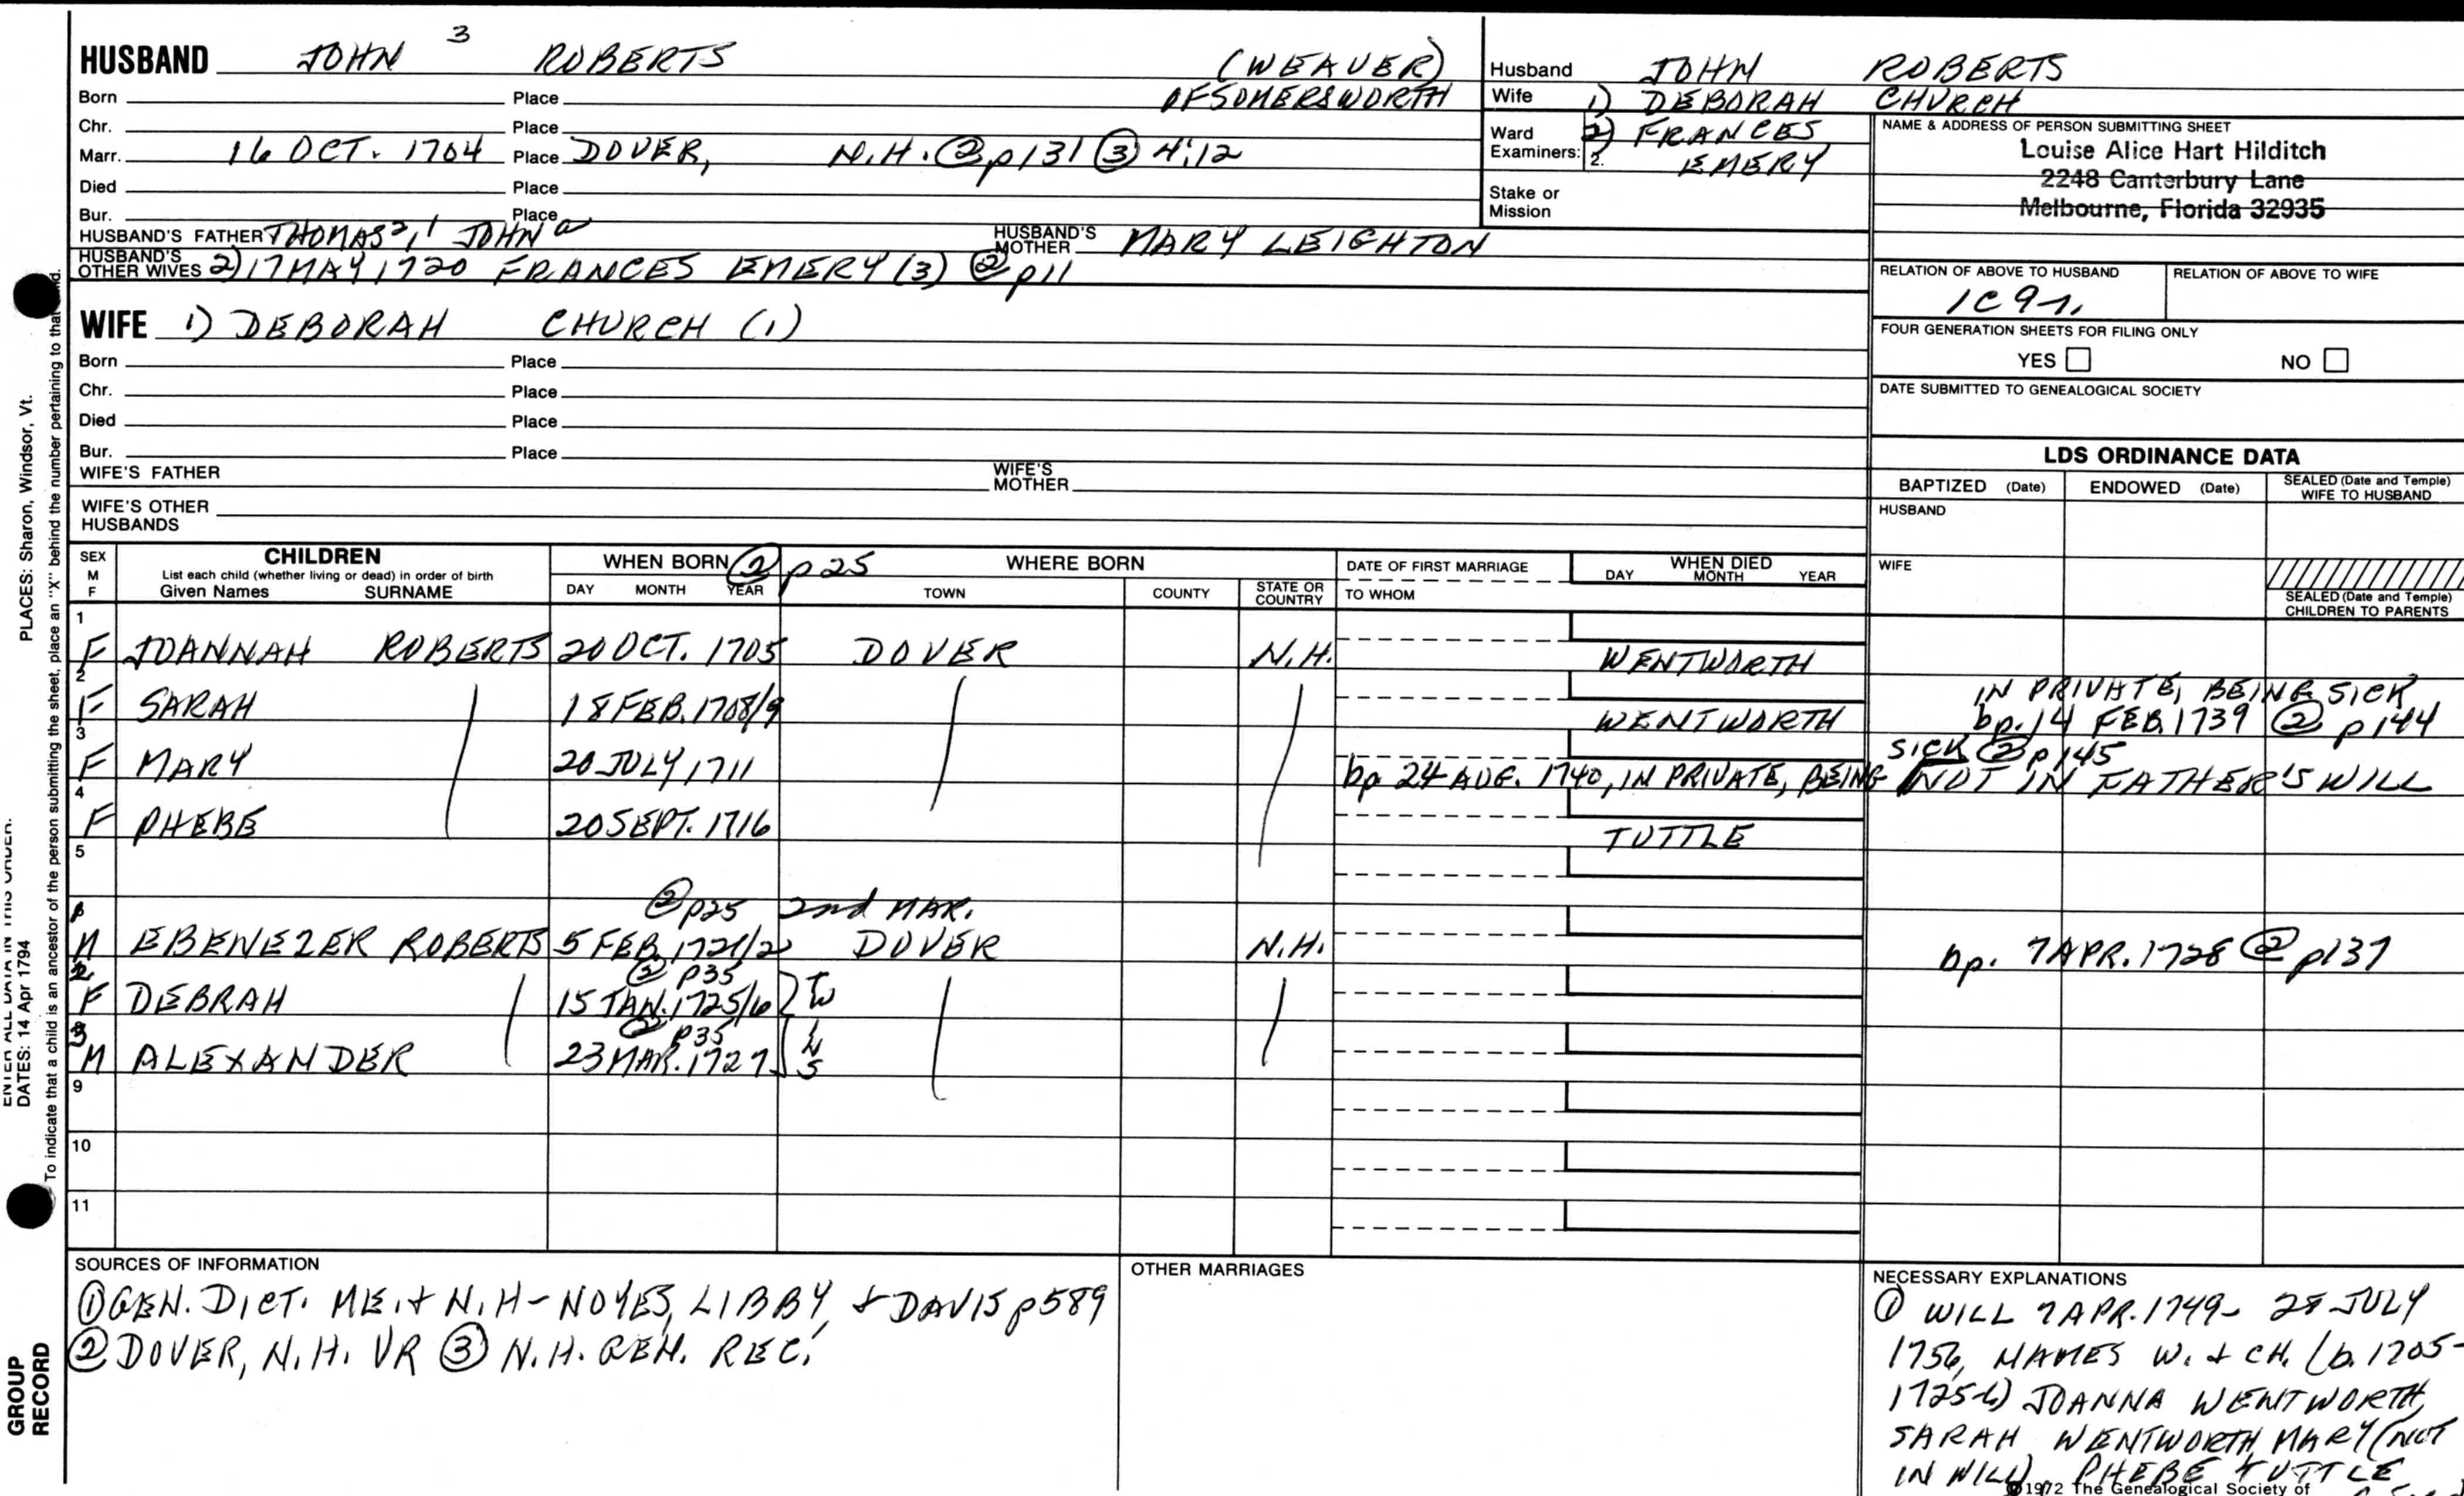 HUSBAND JOHN 3 ROBERTS (WEAVER)
Born Place OF SOMERSWORTH
Chr. Place
Marr. 16 OCT. 1704 Place DOVER, N.H. ② p131 ③ 4:12
Died Place
Bur. Place
HUSBAND'S FATHER THOMAS 2, 1 JOHN a HUSBAND'S MOTHER MARY LEIGHTON
HUSBAND'S OTHER WIVES 2) 17 MAY 1720 FRANCES EMERY (3) ② p11
WIFE 1) DEBORAH CHURCH (1)
Born Place
Chr. Place
Died Place
Bur. Place
WIFE'S FATHER WIFE'S MOTHER
WIFE'S OTHER HUSBANDS
Husband JOHN ROBERTS
Wife 1) DEBORAH CHURCH
Ward 2) FRANCES
Examiners: 2. EMERY
Stake or
Mission
NAME & ADDRESS OF PERSON SUBMITTING SHEET
Louise Alice Hart Hilditch
2248 Canterbury Lane
Melbourne, Florida 32935
RELATION OF ABOVE TO HUSBAND RELATION OF ABOVE TO WIFE
1C9r.
FOUR GENERATION SHEETS FOR FILING ONLY
YES NO
DATE SUBMITTED TO GENEALOGICAL SOCIETY
LDS ORDINANCE DATA
BAPTIZED (Date) ENDOWED (Date) SEALED (Date and Temple) WIFE TO HUSBAND
HUSBAND
WIFE
SEALED (Date and Temple) CHILDREN TO PARENTS
SEX M F CHILDREN List each child (whether living or dead) in order of birth Given Names SURNAME
WHEN BORN ② p25 DAY MONTH YEAR
WHERE BORN TOWN COUNTY STATE OR COUNTRY
DATE OF FIRST MARRIAGE TO WHOM
WHEN DIED DAY MONTH YEAR
1 F JOANNAH ROBERTS 20 OCT. 1705 DOVER N.H. WENTWORTH
IN PRIVATE, BEING SICK
2 F SARAH 18 FEB. 1708/9 WENTWORTH bp. 14 FEB. 1739 ② p144
SICK ② p145
3 F MARY 20 JULY 1711 bp 24 AUG. 1740, IN PRIVATE, BEING NOT IN FATHER'S WILL
4 F PHEBE 20 SEPT. 1716 TUTTLE
5
② p25 2nd MAR.
M EBENEZER ROBERTS 5 FEB. 1721/2 DOVER N.H. bp. 7 APR. 1728 ② p137
② p35
2 F DEBRAH 15 JAN. 1725/6 TW
② p35
3 M ALEXANDER 23 MAR. 1727 INS
9
10
11
SOURCES OF INFORMATION
① GEN. DICT. ME. + N.H - NOYES, LIBBY, + DAVIS p589
② DOVER, N.H. VR ③ N.H. GEN. REC.
OTHER MARRIAGES
NECESSARY EXPLANATIONS
① WILL 7 APR. 1749- 28 JULY
1756, NAMES W. + CH. (b. 1705-
1725-6) JOANNA WENTWORTH,
SARAH WENTWORTH, MARY (NOT
IN WILL), PHEBE TUTTLE
©1972 The Genealogical Society of
PLACES: Sharon, Windsor, Vt.
ENTER ALL DATA IN THIS ORDER:
DATES: 14 Apr 1794
To indicate that a child is an ancestor of the person submitting the sheet, place an "X" behind the number pertaining to that
GROUP
RECORD